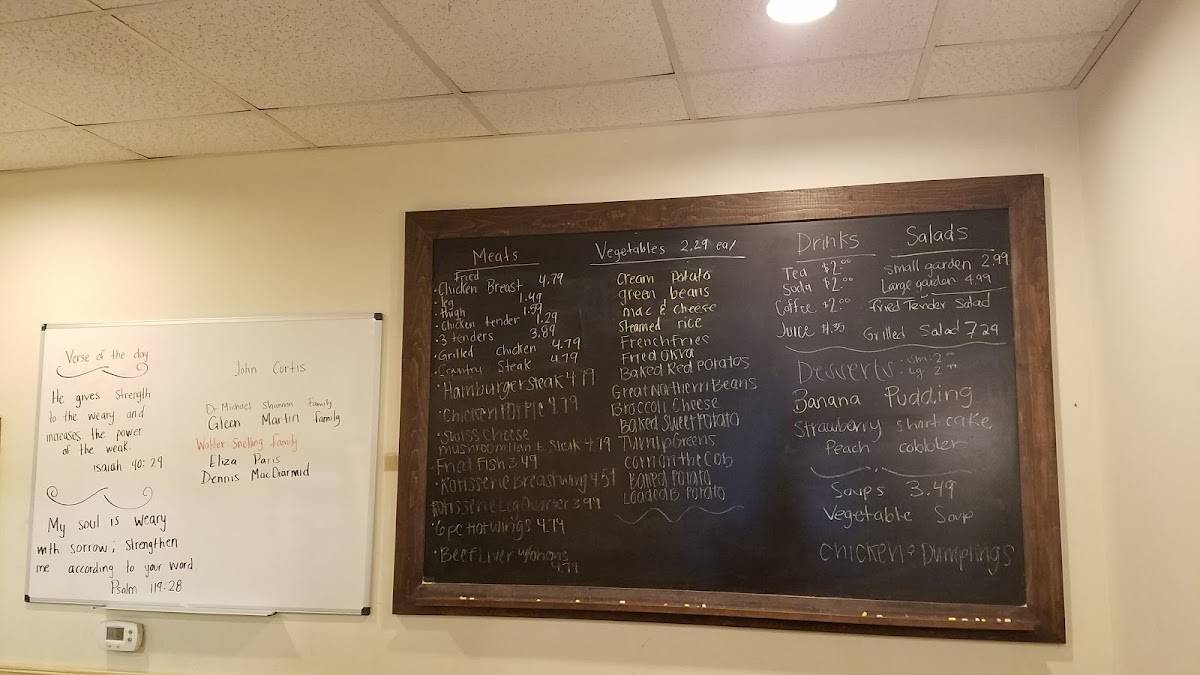 Verse of the day
He gives Strength
to the weary and
increases the power
of the weak.
Isaiah 40:29
My soul is weary
with sorrow; strengthen
me according to your word
Psalm 119:28
John Curtis
Dr Michael Shannon Family
Gleen Martin family
Walter Snelling family
Eliza Paris
Dennis MacDiarmid
Meats
Fried
Chicken Breast 4.79
leg 1.49
thigh 1.59
Chicken tender 1.29
3 tenders 3.89
Grilled Chicken 4.79
Country Steak 4.79
Hamburger Steak 4.79
Chicken Pot Pie 4.79
Swiss Cheese
mushroom Steak 4.79
Fried Fish 3.49
Rotisserie Breast wing 4.59
Rotisserie Leg Quarter 3.99
6 pc Hot Wings 4.79
Beef Liver w/onions
4.79
Vegetables 2.29 ea/
Cream Potato
green beans
mac & cheese
Steamed rice
French Fries
Fried Okra
Baked Red Potatoes
Great Northern Beans
Broccoli Cheese
Baked Sweet Potato
Turnip Greens
Corn on the Cob
Baked Potato
Loaded B. Potato
Drinks
Tea $2.00
Soda $2.00
Coffee $2.00
Juice
Salads
Small garden 2.99
Large garden 4.99
Fried Tender Salad
Grilled Salad 7.29
Desserts: Sm. 2
Lg. 2
Banana Pudding
Strawberry short cake
Peach cobbler
Soups 3.49
Vegetable Soup
Chicken & Dumplings